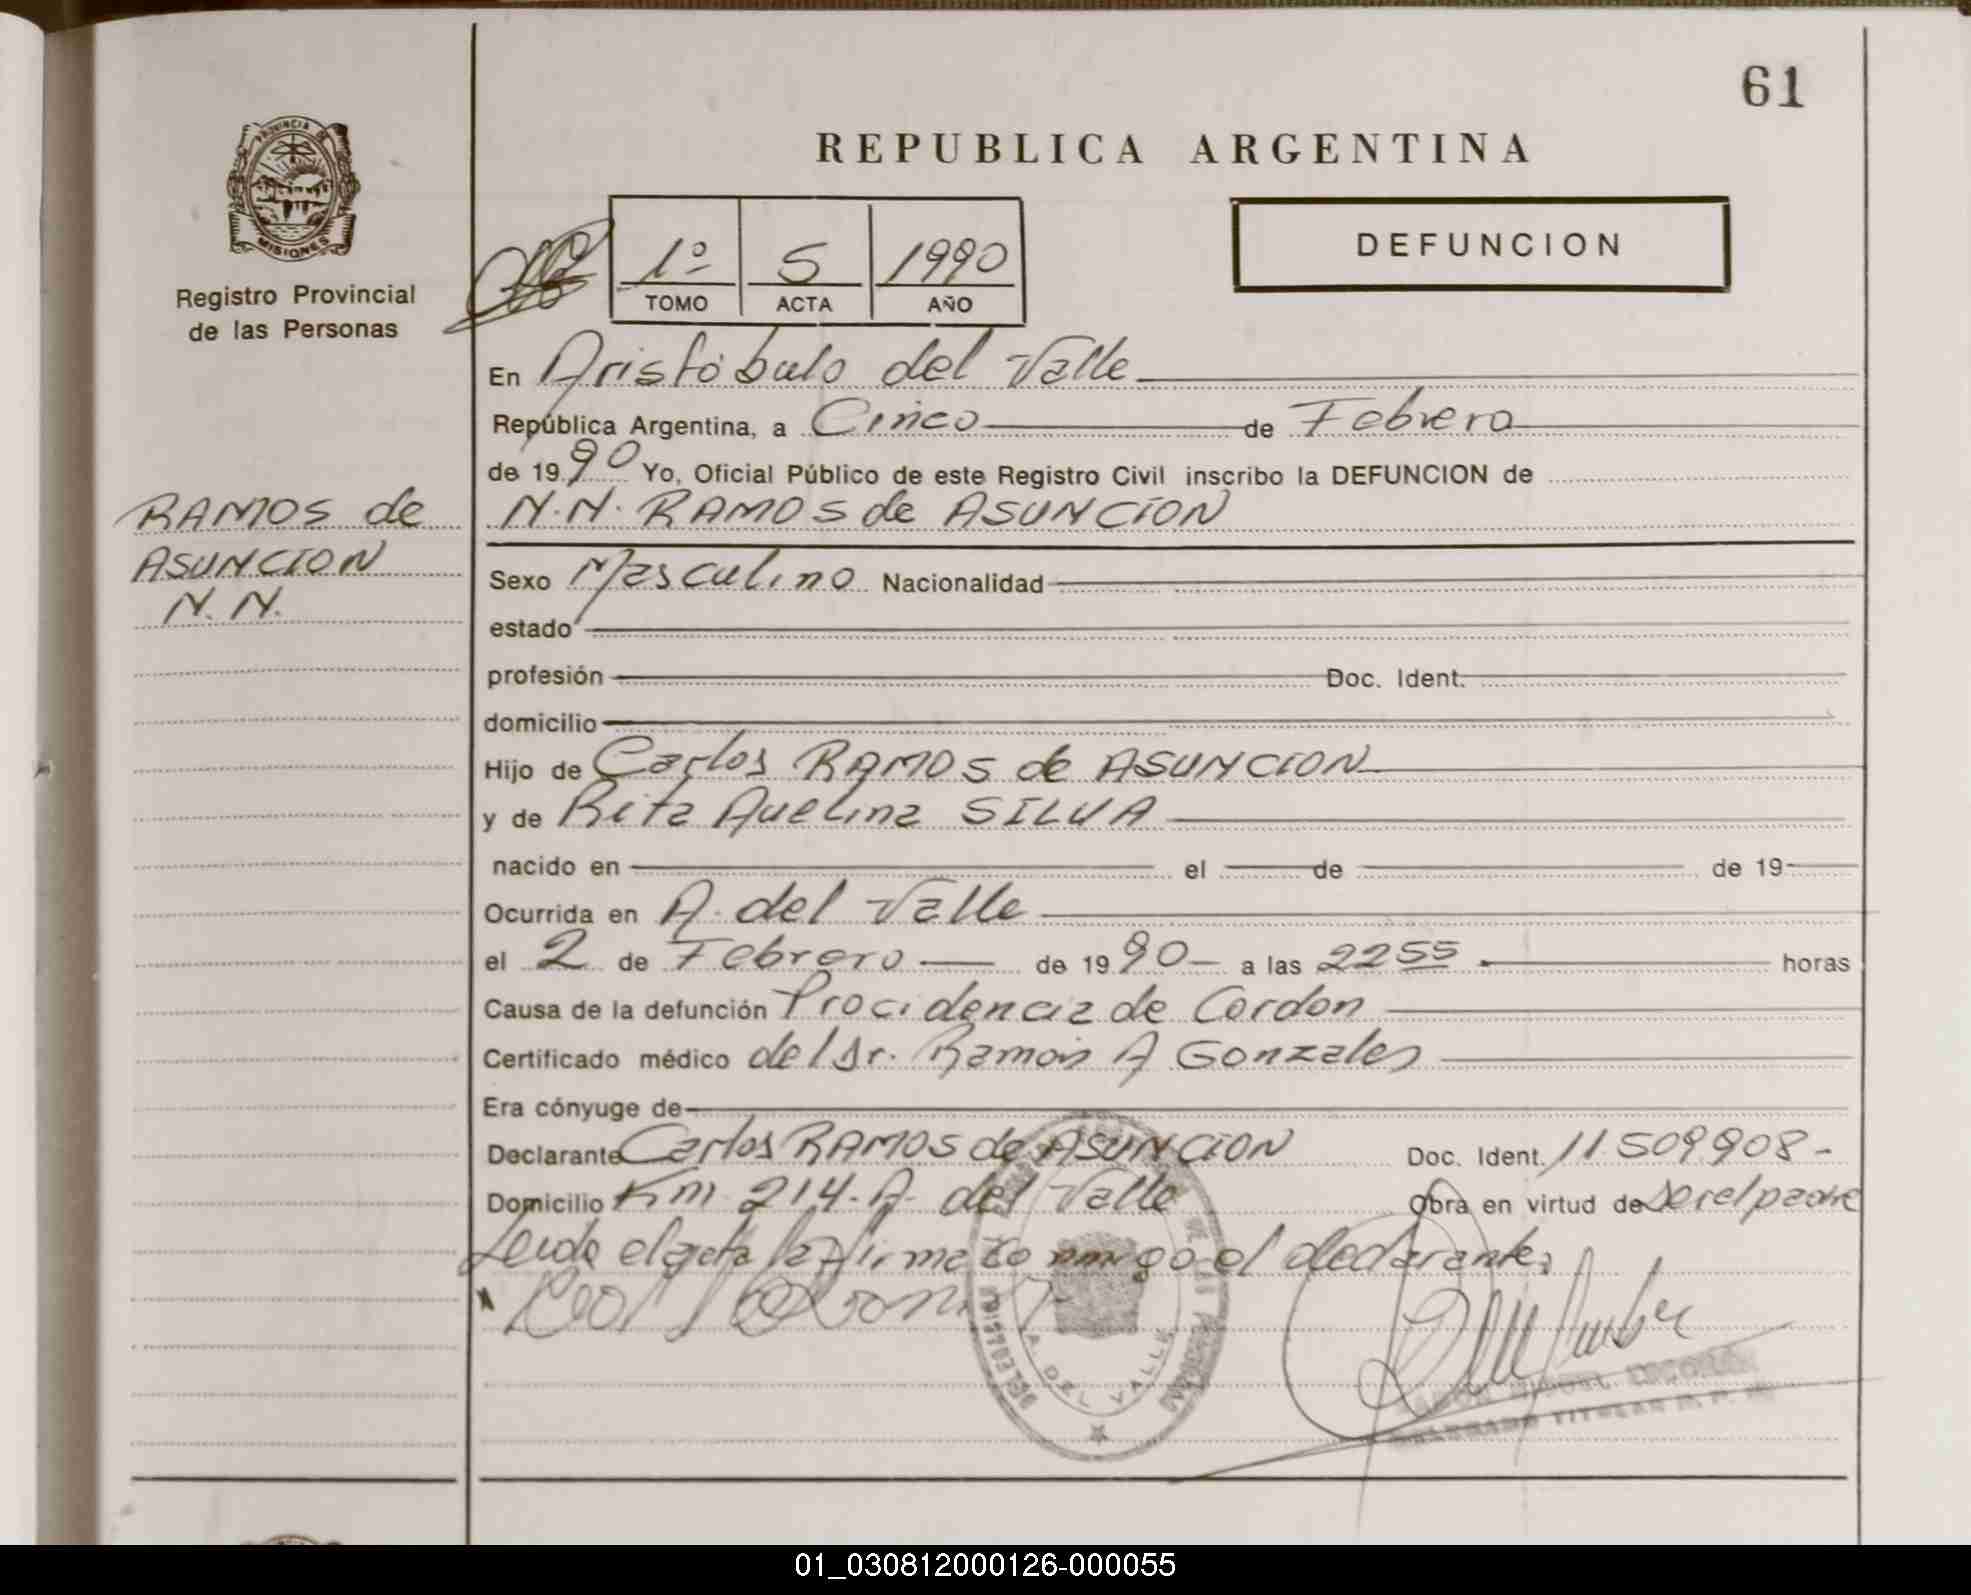 61
REPUBLICA ARGENTINA
PROVINCIA DE
MISIONES
Registro Provincial
de las Personas
1º 5 1990
TOMO ACTA AÑO
DEFUNCION
En Aristóbulo del Valle
República Argentina, a Cinco de Febrero
de 1990 Yo, Oficial Público de este Registro Civil inscribo la DEFUNCION de
RAMOS de
ASUNCION
N. N.
N.N. RAMOS de ASUNCION
Sexo Masculino Nacionalidad
estado
profesión Doc. Ident.
domicilio
Hijo de Carlos RAMOS de ASUNCION
y de Rita Avelina SILVA
nacido en el de de 19
Ocurrida en A. del Valle
el 2 de Febrero de 1990 a las 2255 horas
Causa de la defunción Procidencia de Cordon
Certificado médico del Dr. Ramón A Gonzales
Era cónyuge de
Declarante Carlos RAMOS de ASUNCION Doc. Ident. 11509908-
Domicilio Km 214. A. del Valle Obra en virtud de ser el padre
Leida el acta la firma conmigo el declarante
A. DEL VALLE
TITULAR
01_030812000126-000055